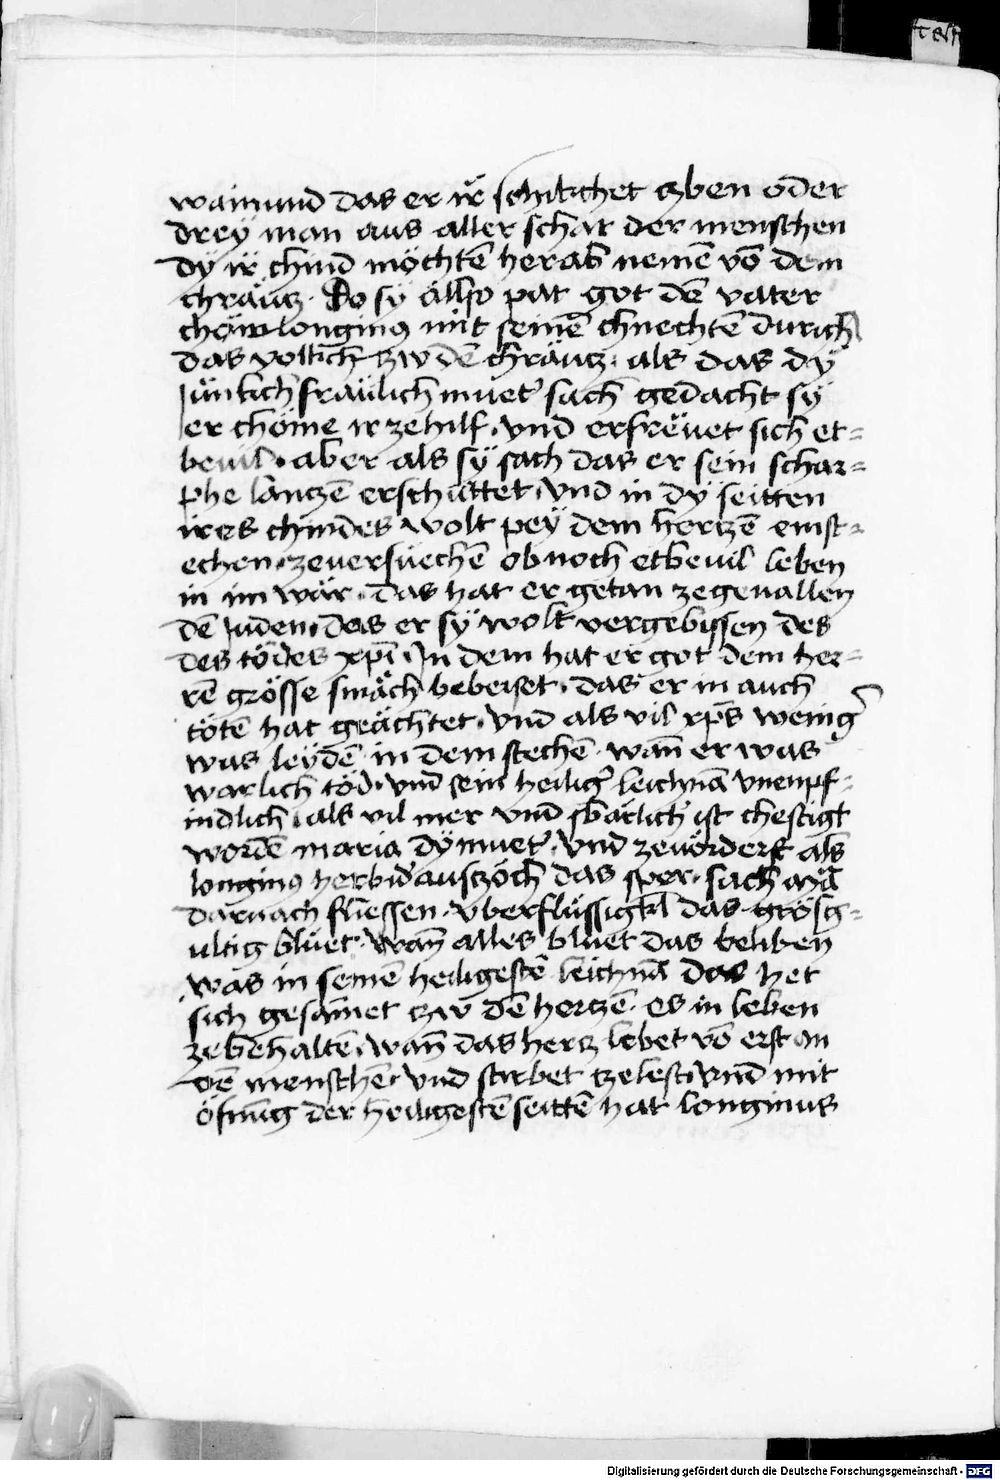 waimund das er ir̈ schikchet czben oder
dreÿ man aus aller schar der menschen
dÿ ir̈ chind möchtē herab nemē võ dem
chräucz · Do sÿ allso pat got dē vater
chöm longinꝰ mit seinē chnechtē durich
das volkch czw dē chräucz · als das dÿ
Jünkchfräülich muetˀ sach gedacht sÿ
er chöme ir zehilf · vnd erfrëuet sich et=
beuil · aber als sÿ sach das er sein schar=
phe lanczē erschüttet · vnd in dÿ seitten
ires chindes wolt peÿ dem herczē einst=
echen · zeuersüechē ob noch etbeuil leben
in im wär · das hat er getan zegeuallen
dē Juden · das er sÿ wolt vergebissen des
des tödes xp̄i · Jn dem hat er got dem her=
rē grösse smäch bebeiset · das er in auch
tötē hat geächtet · vnd als vil xp̄s wenigˀ
was leÿdē in dem stechē · wañ er was
warlich töd · vnd sein heiligˀ leichnā vnenpf=
indlich · als vil mer vnd sbärlichˀ ist chestigt
wordē maria dÿ muetˀ · vnd zeuörderst als
longinꝰ herbidˀ auszöch das sper · sach
darnach fliessen · vberflüssigkl̄ das grösg=
ultig blüet · wañ alles bluet das beliben
was in seinē heiligestē leichnā das het
sich gesam̄et czw dē herczē · es in leben
zebehaltē · wañ das hercz lebet võ erst an
dē menschē · vnd stirbet czelest · vnd mit
öfnūg der heiligestē seittē hat longinus
Digitalisierung gefördert durch die Deutsche Forschungsgemeinschaft - DFG